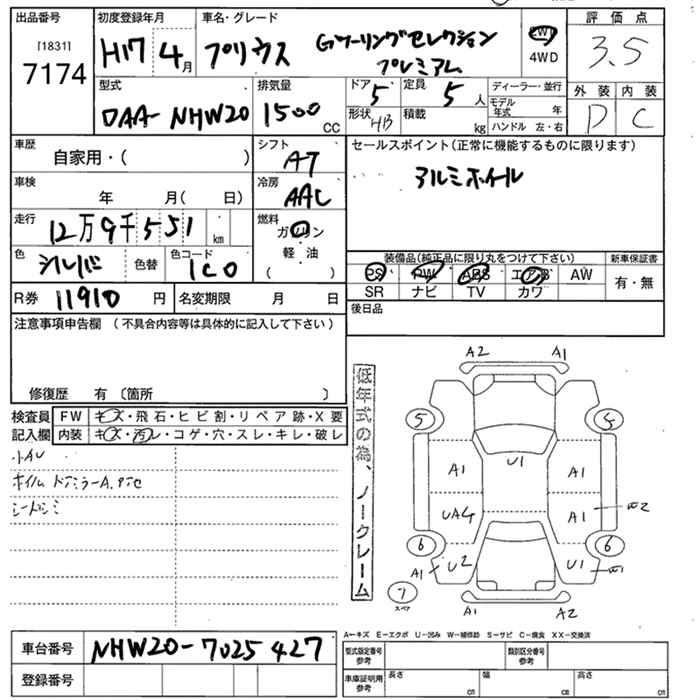 出品番号
[1831]
7174
初度登録年月
H17 4月
車名・グレード
プリウス Gツーリングセレクション
プレミアム
2WD
4WD
評価点
3.5
型式
DAA-NHW20
排気量
1500 CC
ドア 5
形状 HB
定員 5人
積載 kg
ディーラー・並行
モデル年式 年
ハンドル 左・右
外装 内装
D C
車歴
自家用・( )
シフト
AT
セールスポイント(正常に機能するものに限ります)
アルミホイール
車検
年 月( 日)
冷房
AAC
走行
12万9千551 km
燃料
ガソリン
軽・油
( )
色
シルバ
色替
色コード
1C0
装備品(純正品に限り丸をつけて下さい)
新車保証書
PS PW ABS エアB AW
SR ナビ TV カワ
有・無
R券 11910 円
名変期限 月 日
後日品
注意事項申告欄 (不具合内容等は具体的に記入して下さい)
修復歴 有 〔箇所 〕
検査員 FW キズ・飛石・ヒビ割・リペア跡・X要
記入欄 内装 キズ・汚レ・コゲ・穴・スレ・キレ・破レ
小AU
シートシミ
低年式の為、ノークレーム
A2 A1
5 5
U1
A1 A1
UA4 A1 W2
6 6
A1 U2 U1 W1
7
スペア
A1 A2
A-キズ E-エクボ U-凹み W-補修跡 S-サビ C-腐食 XX-交換済
車台番号 NHW20-7025427
登録番号
型式指定番号
参考
類別区分番号
参考
車庫証明用
参考
長さ cm
幅 cm
高さ cm